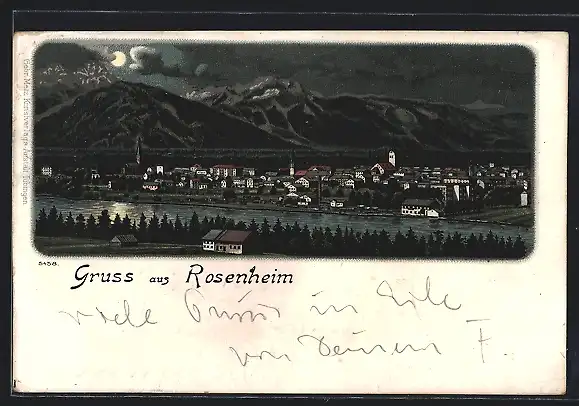 5458.
Gruss aus Rosenheim
viele Grüsse in Eile
von Deinem F.